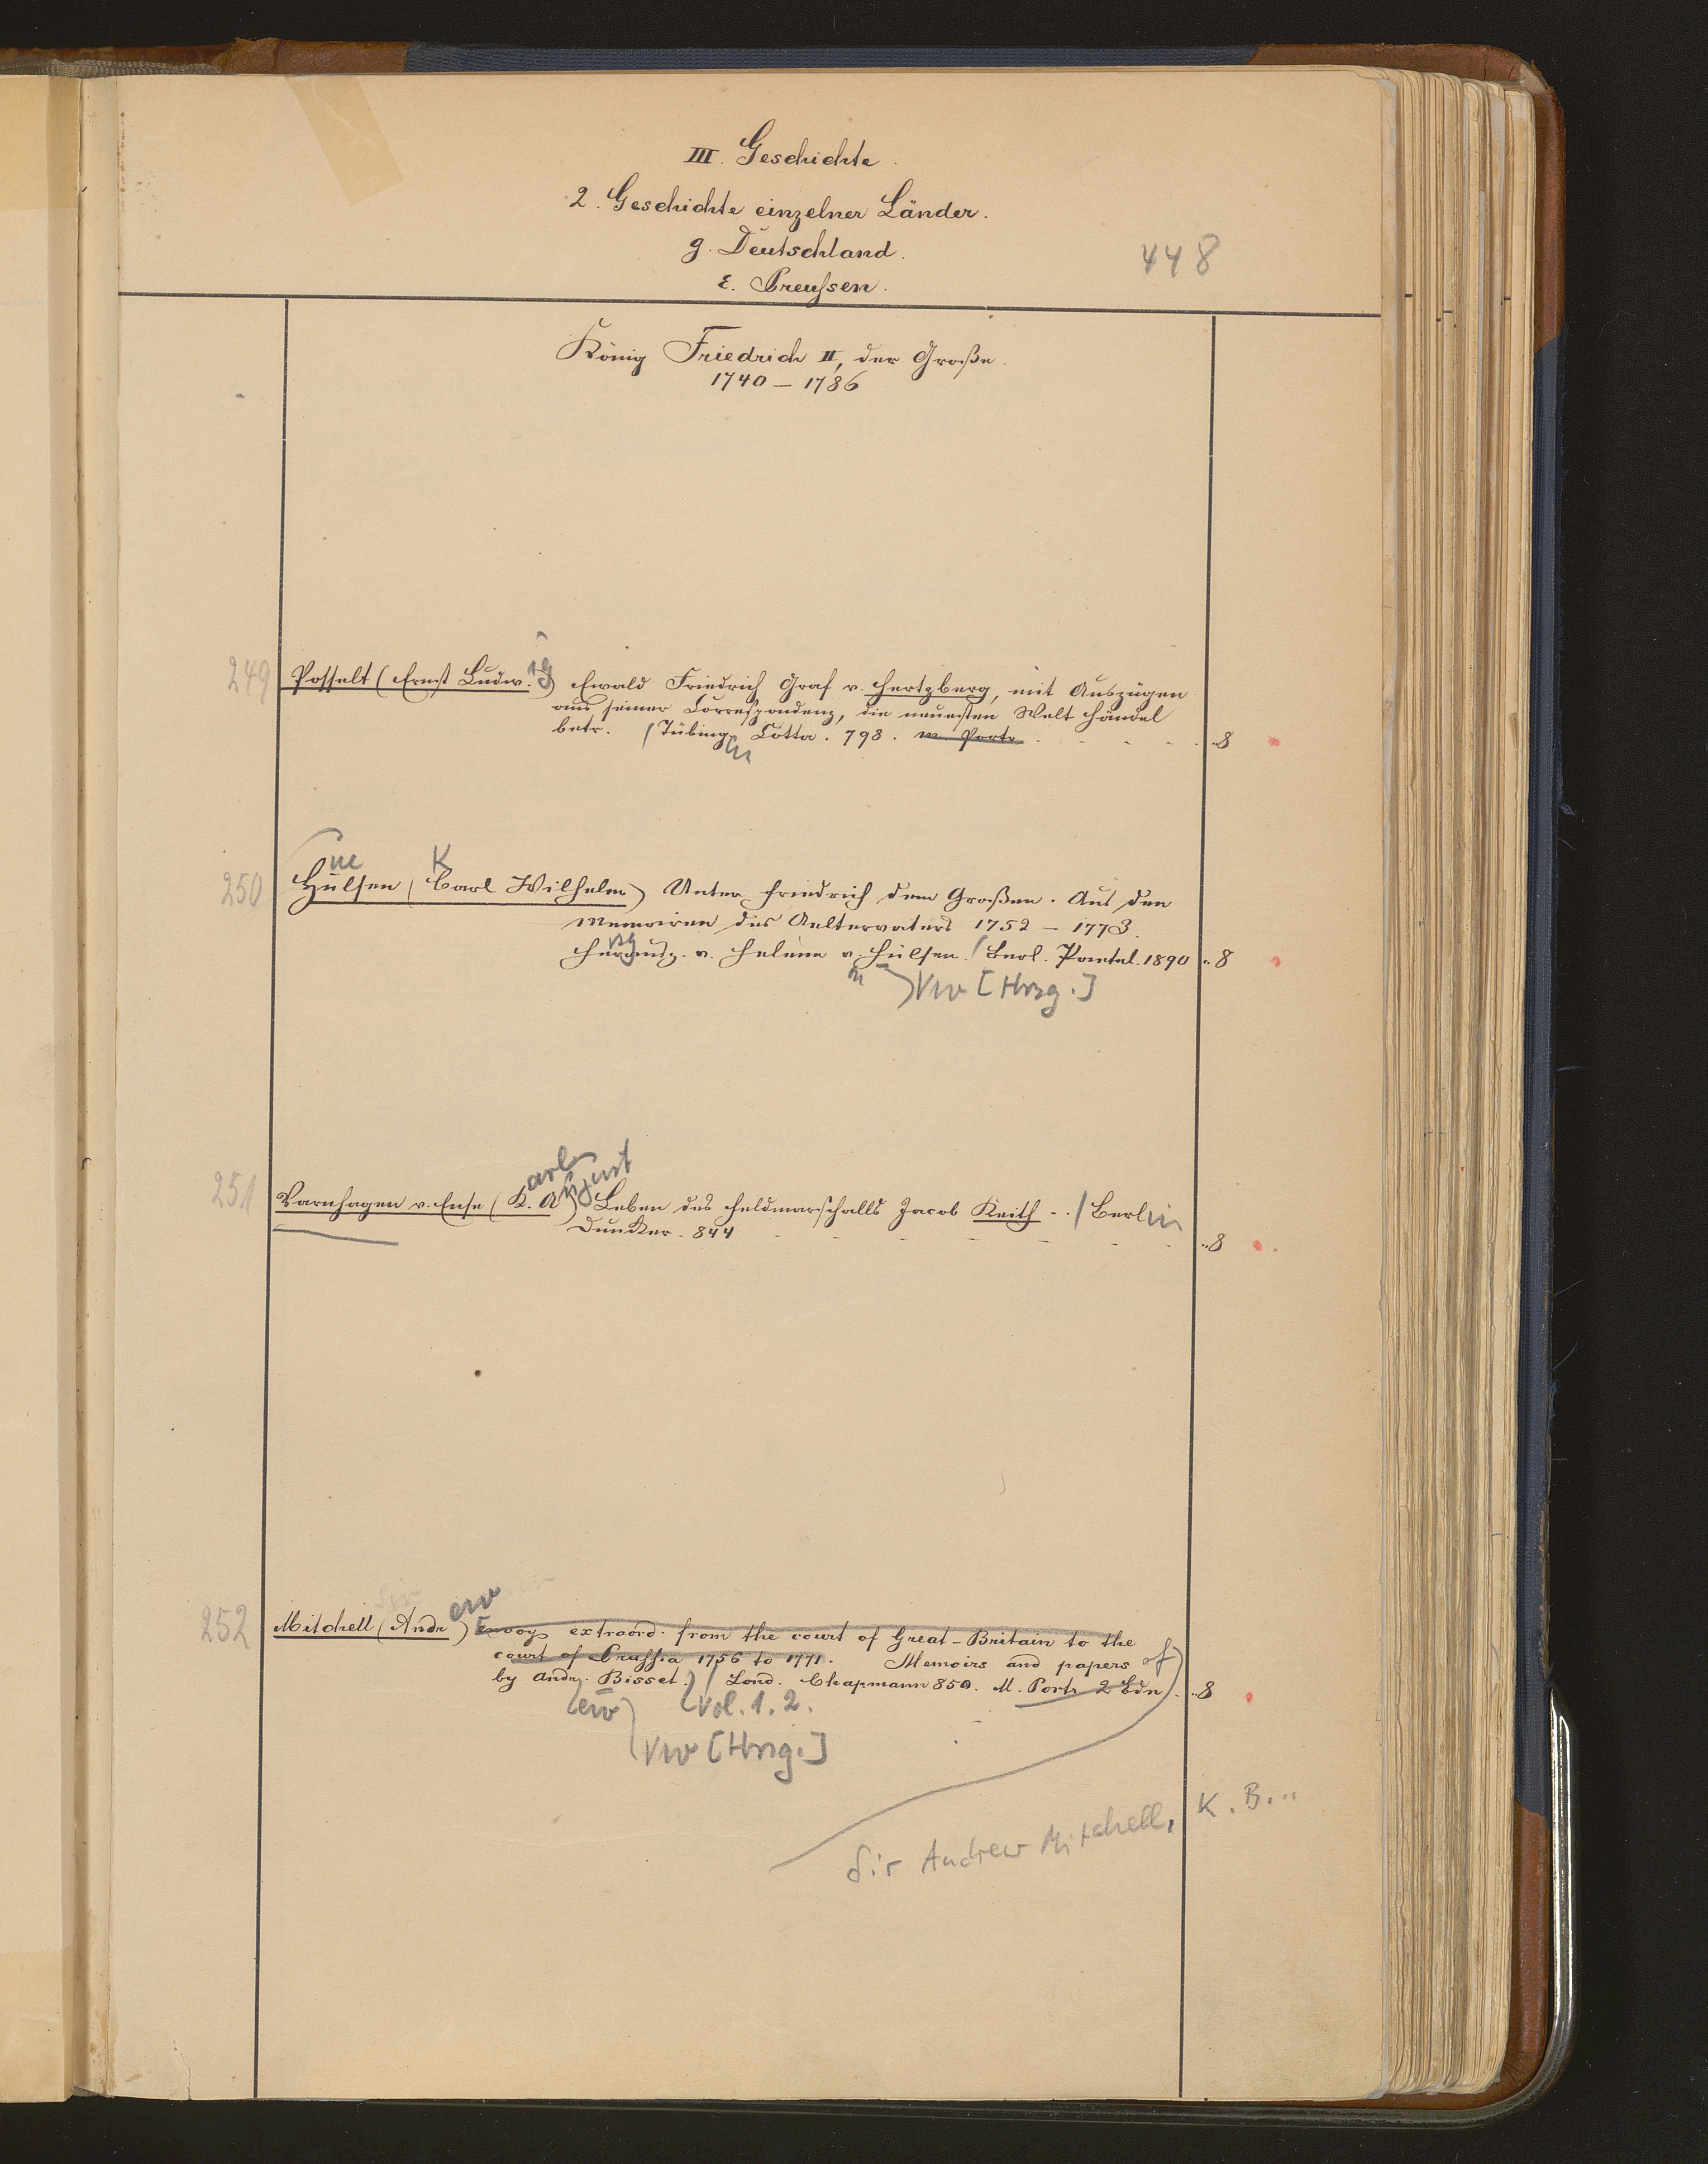 III. Geschichte.
2. Geschichte einzelner Länder.
g. Deutschland.
448
ε. Preußen.
König Friedrich II, der Große.
1740 – 1786
249 Posselt (Ernst Ludw.ig) Ewald Friedrich Graf v. Hertzberg, mit Auszügen
aus seiner Correspondenz, die neuesten Welthändel
betr. / Tübing. Cotta. 798. m. Portr. 8
en
ue K
250 Hülsen (Carl Wilhelm) Unter Friedrich dem Großen. Aus den
Memoiren des Aeltervaters 1752 – 1773.
Herausg. v. Helene v. Hülsen. / Berl. Paetel. 1890 8
rsg
n Vw [Hrsg.]
arl ugust
251 Varnhagen v. Ense (K. A.) Leben des Feldmarschalls Jacob Keith - . / Berlin
Duncker. 844 8
Sir
ew
252 Mitchell (Andr.) Envoy extraord. from the court of Great-Britain to the
court of Prussia 1756 to 1771. Memoirs and papers of
by Andr. Bisset. / Lond. Chapmann 850. M. Portr. 2 Edn. 8
(ew) Vol. 1. 2.
Vw [Hrsg.]
Sir Andrew Mitchell, K. B...